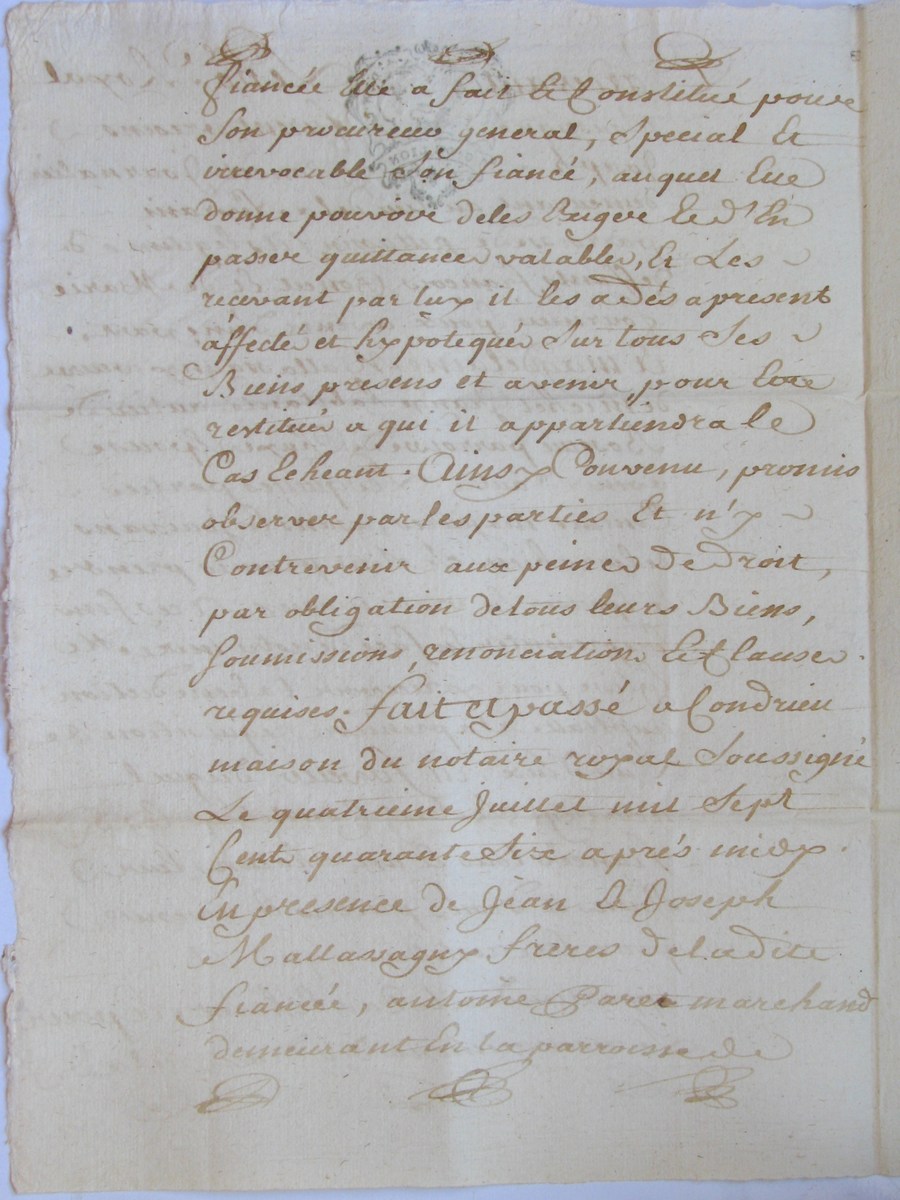 fiancée Elle a fait Et Constitué pour
Son procureur general, Special Et
irrevocable Son fiancé, auquel Elle
donne pouvoir deles Exiger Et d'En
passer quittances valables, Et Les
recevant par luy il les a dés apresent
affecté et hypotequés Sur tous Ses
Biens presens et avenir, pour Etre
restitués a qui il appartiendra le
Cas Echeant. Ainsy Convenu, promis
observer par les parties Et n'y
Contrevenir aux peines de droit,
par obligation detous leurs Biens,
Soumissions, renonciations Et Clauses
requises. fait et passé a Condrieu
maison du notaire royal Soussigné
Le quatrieme Juillet mil Sept
Cent quarante Six après midy.
En presence de Jean & Joseph
Mallassagny freres deladite
fiancée, antoine Paret marchand
demeurant En la parroisse de